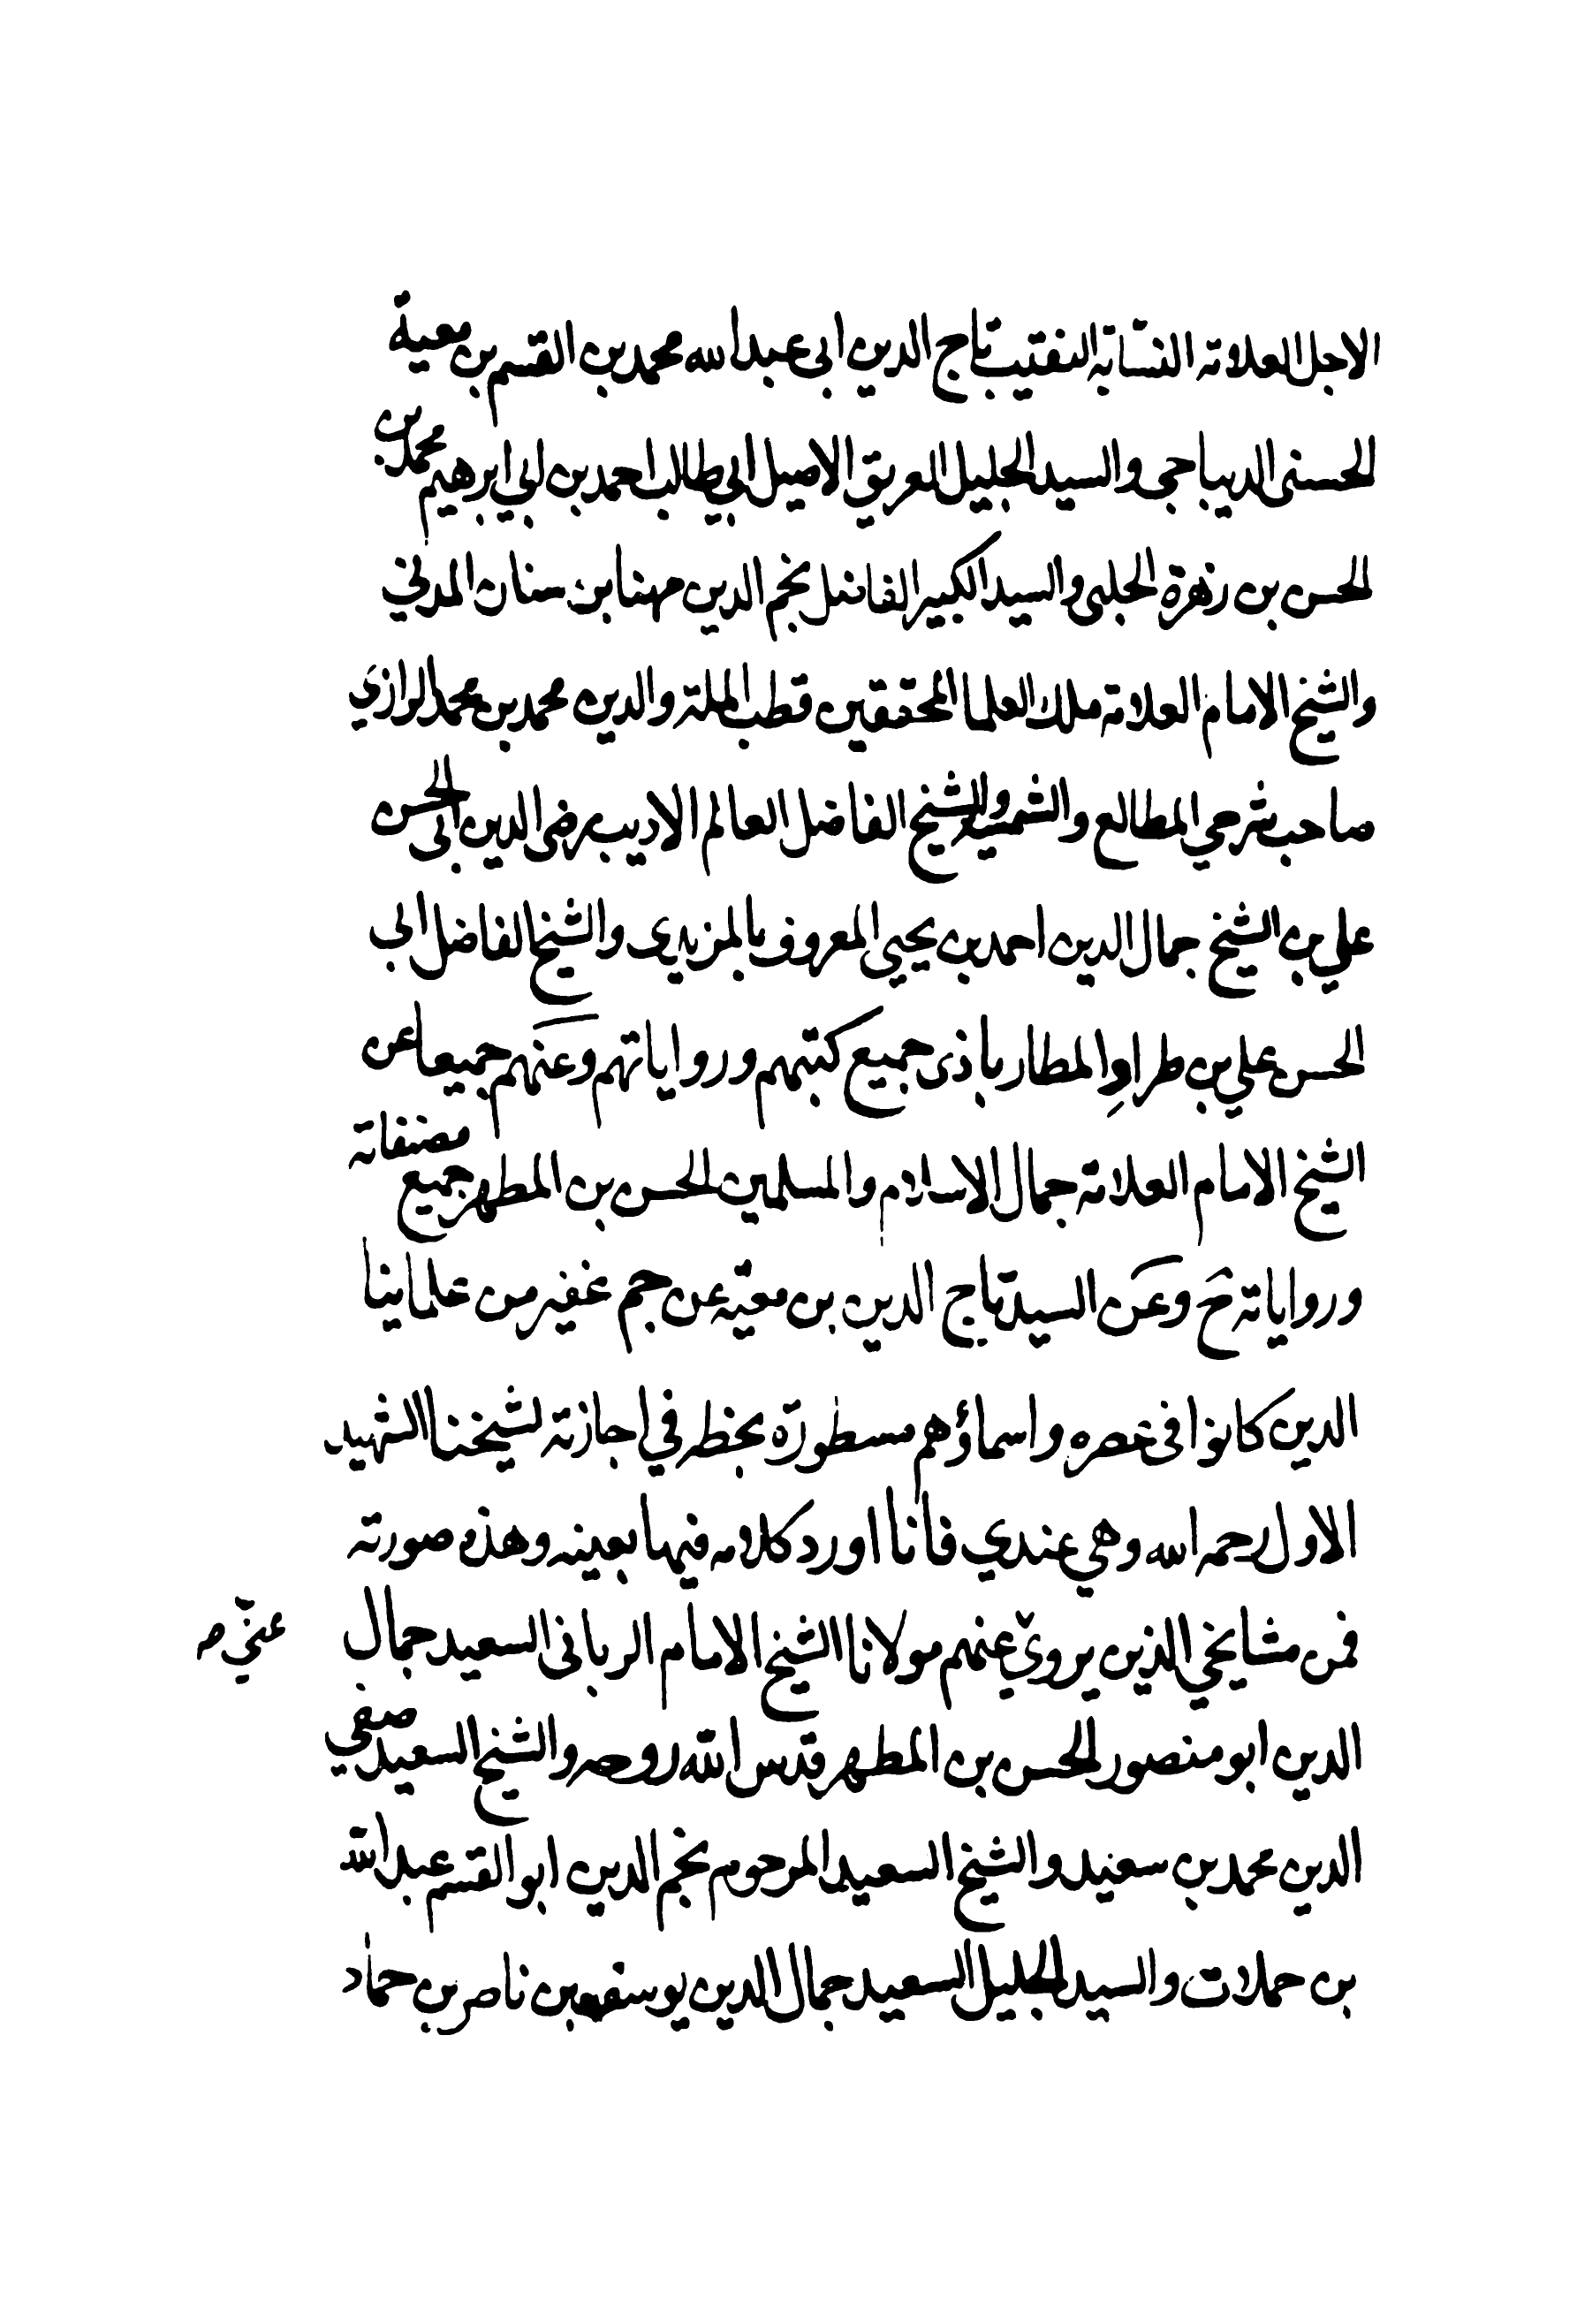 الاجل العلامة النسّابة النقيب تاج الدين ابى عبدالله محمد بن القسم بن معية
الحسنى الديباجى والسيد الجليل العريق الاصيل ابي طالب احمد بن ابي ابرهيم محمد بن
الحسن بن زهرة الحلبى والسيد الكبير الفاضل نجم الدين مهنا بن سنان المدني
والشيخ الامام العلامة ملك العلما المحققين قطب الملة والدين محمد بن محمد الرازي
صاحب شرحي المطالع والشمسية والشيخ الفاضل العالم الاديب رضى الدين ابى الحسن
علي بن الشيخ جمال الدين احمد بن يحيى المعروف بالمزيدى والشيخ الفاضل ابي
الحسن علي بن طراد المطارباذى جميع كتبهم ورواياتهم وعنهم جميعا عن
الشيخ الامام العلامة جمال الاسلام والمسلمين الحسن بن المطهر جميع مصنفاته
ورواياته ح وعن السيد تاج الدين بن معيّه عن جم غفير من علماينا
الدين كانوا فى عصره واسماؤهم مسطورة بخطه في اجازته لشيخنا الشهيد
الاول رحمه الله وهي عندي فانا اورد كلامه فيها بعينه وهذه صورته
فمن مشايخي الذين يروي عنهم مولانا الشيخ الامام الربانى السعيد جمال
عنّي صـ
الدين ابو منصور الحسن بن المطهر قدس الله روحه والشيخ السعيد صفي
الدين محمد بن سعيد والشيخ السعيد المرحوم نجم الدين ابو القسم عبد الله
بن حملات والسيد الجليل السعيد جمال الدين يوسف بن ناصر بن حماد